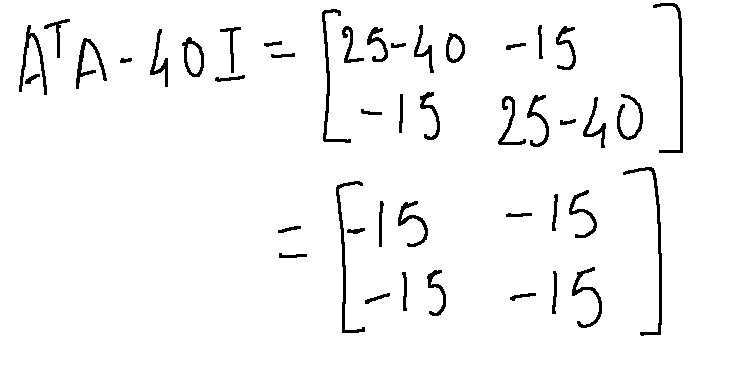 AᵀA - 40I = [25-40 -15
-15 25-40]
= [-15 -15
-15 -15]